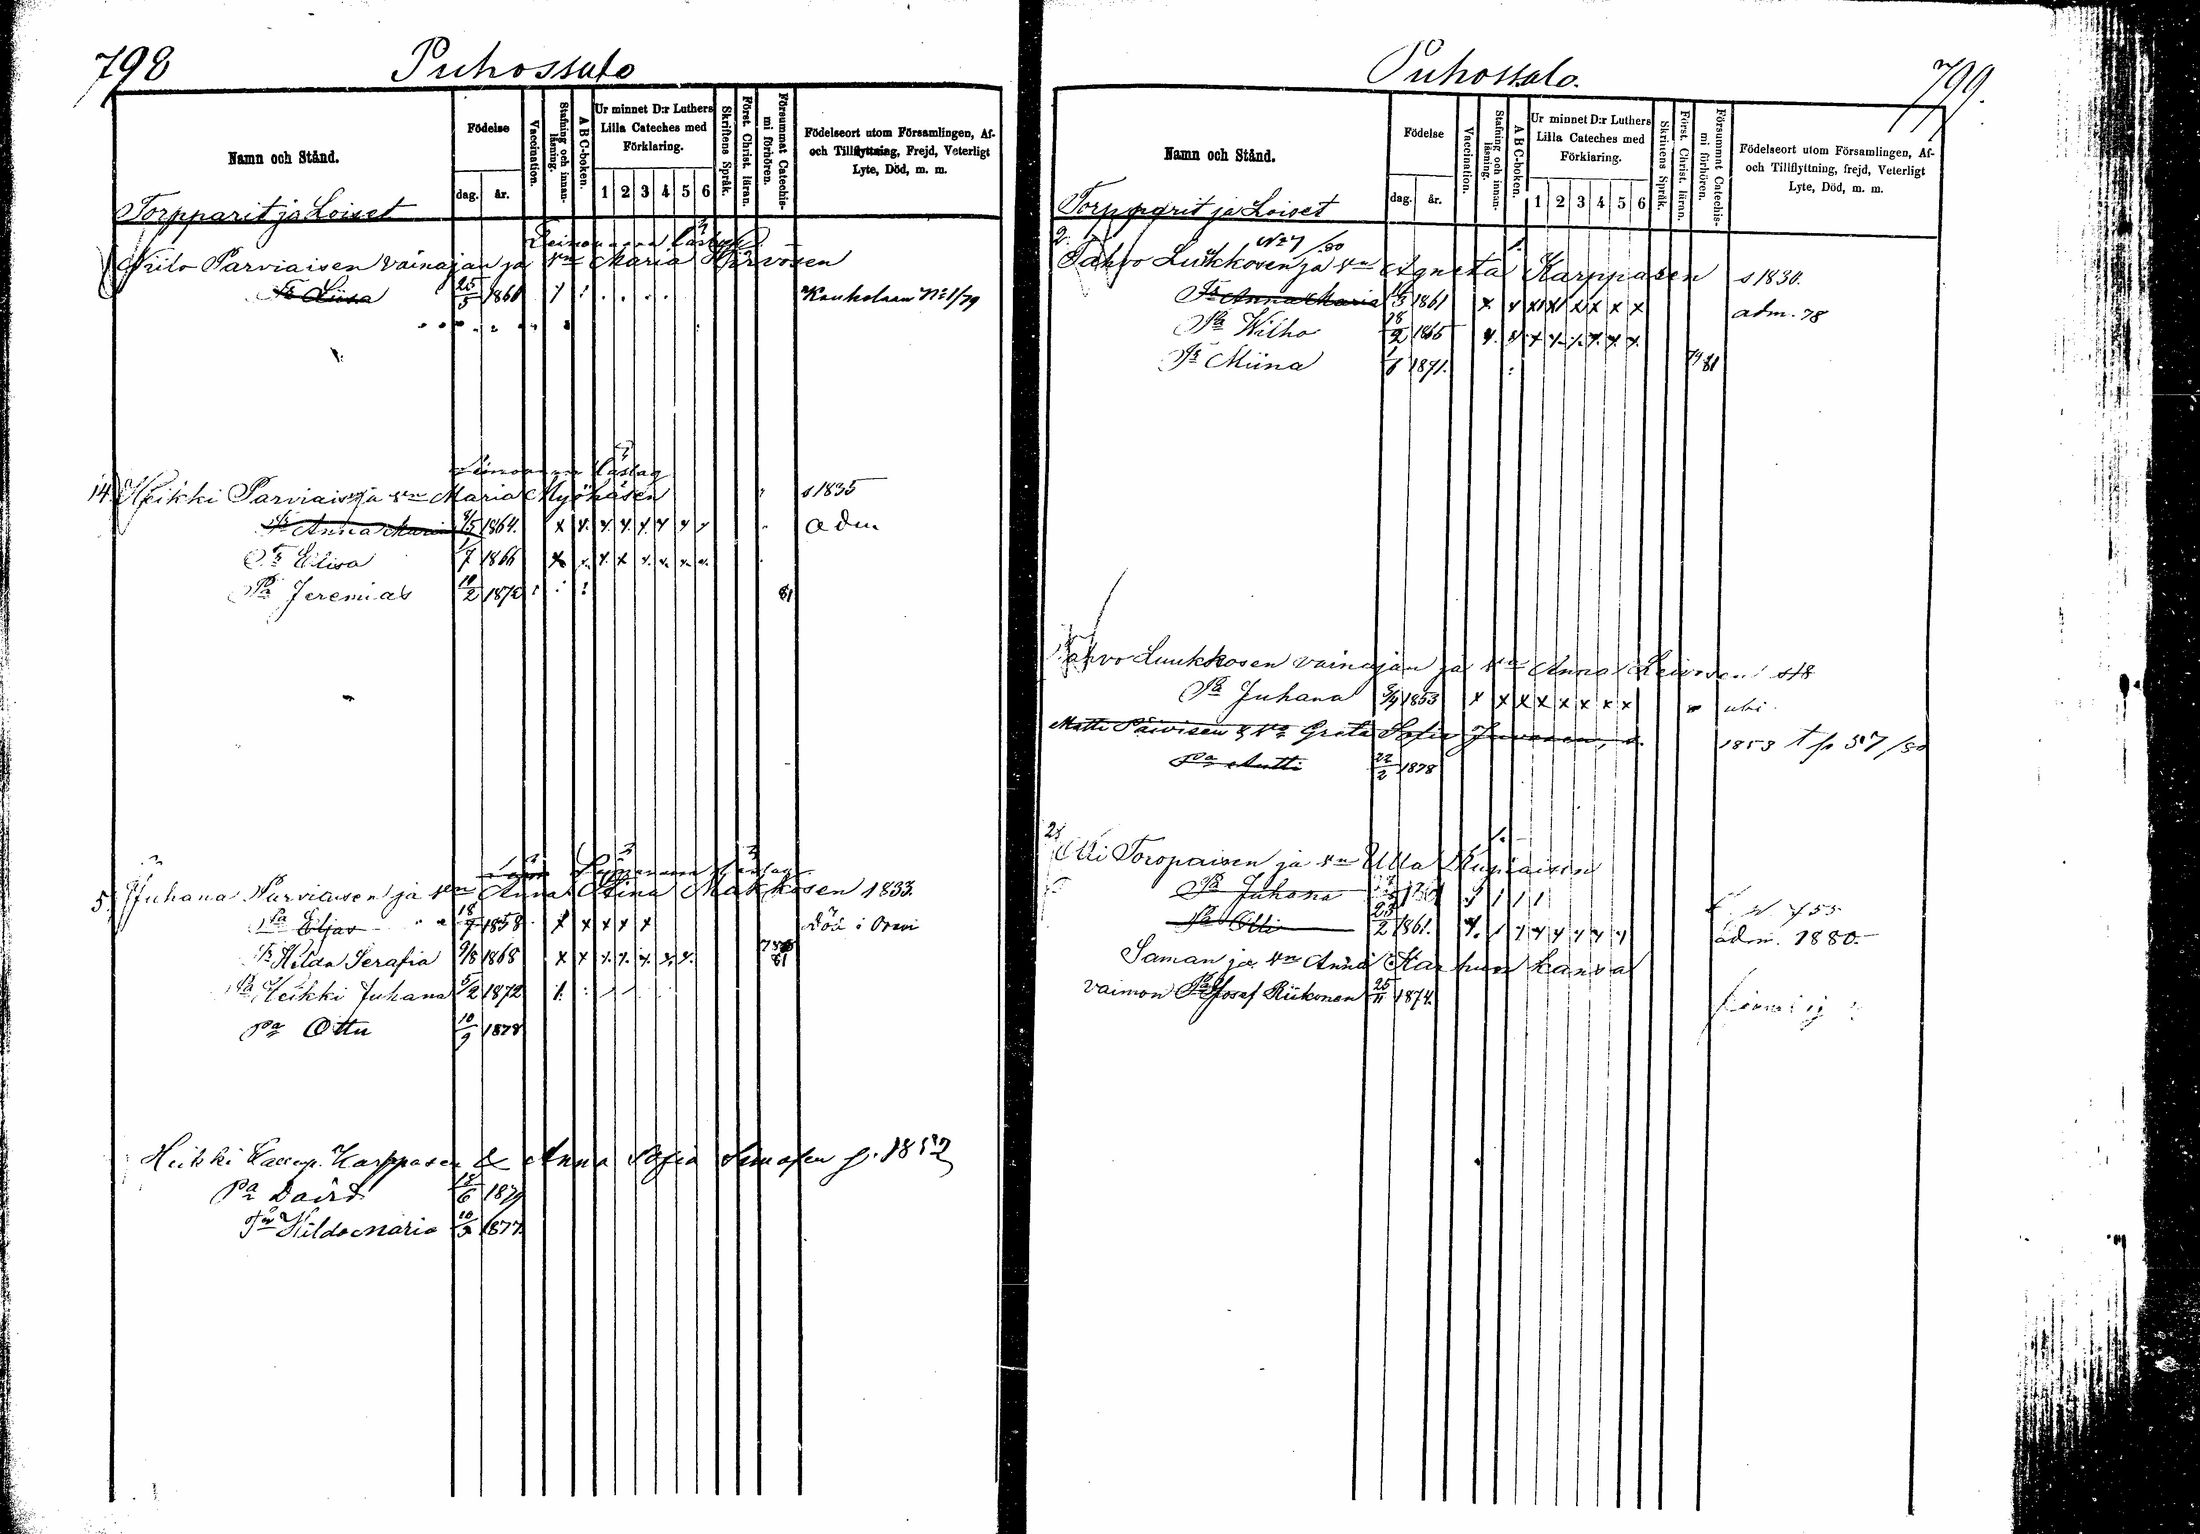 798
Puhossalo
Namn och Stånd.
Födelse
dag.
år.
Vaccination.
Stafning och innan-läsning.
A B C-boken.
Ur minnet D:r Luthers Lilla Cateches med Förklaring.
1 2 3 4 5 6
Skriftens Språk.
Först. Christ. läran.
Försummat Catechis-mi förhören.
Födelseort utom Församlingen, Af- och Tillflyttning, Frejd, Veterligt Lyte, Död, m. m.
Torpparit ja Loiset
Niilo Parviaisen vainajan ja vm Maria Hirvosen
Tr Liisa 25/5 1860 Kauholaan No 1/79
14. Heikki Parviaisen ja vm Maria Myöhäsen s 1835
Tr Anna Maria 8/5 1864. x x. x. x. x. x x x adm
Tr Elisa 1/7 1866 x x. x. x x. x. x. x.
Pa Jeremias 10/2 1873 81
5. Juhana Parviaisen ja vm Anna Stina Makkosen 1833.
Pa Eljas 18/7 1858 x x x x x Död i
Tr Hilda Serafia 9/8 1868 x x x. x. x. x. x. 81
Pa Heikki Juhana 5/2 1872
Pa Ottu 10/9 1878
Heikki Karppasen & Anna Sofia f. 1852
Pa David 6 1879
Tr Hilda Maria 10/3 1877.
Puhossalo.
799.
Namn och Stånd.
Födelse
dag.
år.
Vaccination.
Stafning och innan-läsning.
A B C-boken.
Ur minnet D:r Luthers Lilla Cateches med Förklaring.
1 2 3 4 5 6
Skriftens Språk.
Först. Christ. läran.
Försummat Catechis-mi förhören.
Födelseort utom Församlingen, Af- och Tillflyttning, frejd, Veterligt Lyte, Död, m. m.
Torpparit ja Loiset
No 7/80
2. Pahvo Luukkosen ja vm Agneta Karppasen s 1830.
Tr Anna Maria 1861 x x x x x x x x adm. 78
Pa Wilho 18/2 1865 x. x. x x. x. x. x. x.
Tr Miina 1/6 1871. 79 81
Pahvo Luukkosen vainajan ja vm Anna s
Pa Juhana 3/9 1853 x x x x x x x x
Matti Päivisen & vm Greta Sofia s. 1853 p 57/80
Pa Antti 22/2 1878
Olli Toropaisen ja vm Ulla
Pa Juhana
Pa Olli 23/2 1861. adm. 1880.
Saman ja vm Anna kanssa
vaimon Pa Josef Riikonen 25/11 1874.